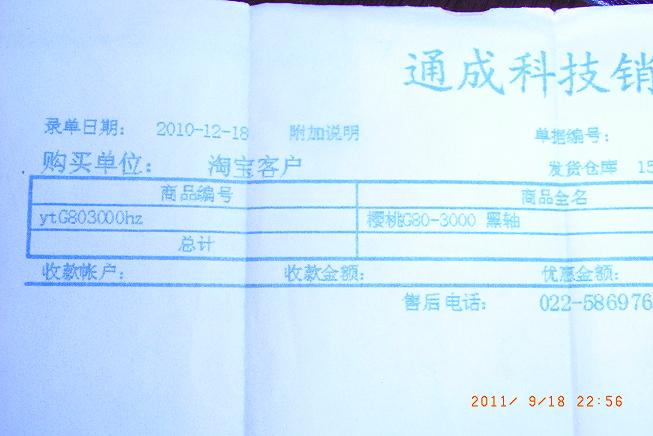 通成科技销
录单日期： 2010-12-18 附加说明 单据编号：
购买单位： 淘宝客户 发货仓库 15
商品编号 商品全名
ytG803000hz 樱桃G80-3000 黑轴
总计
收款帐户： 收款金额： 优惠金额：
售后电话： 022-586976
2011/ 9/18 22:56